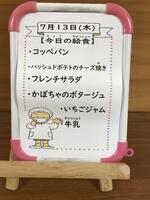 7月13日(木)
【今日の給食】
・コッペパン
・ハッシュドポテトのチーズ焼き
・フレンチサラダ
・かぼちゃのポタージュ
・いちごジャム
牛乳